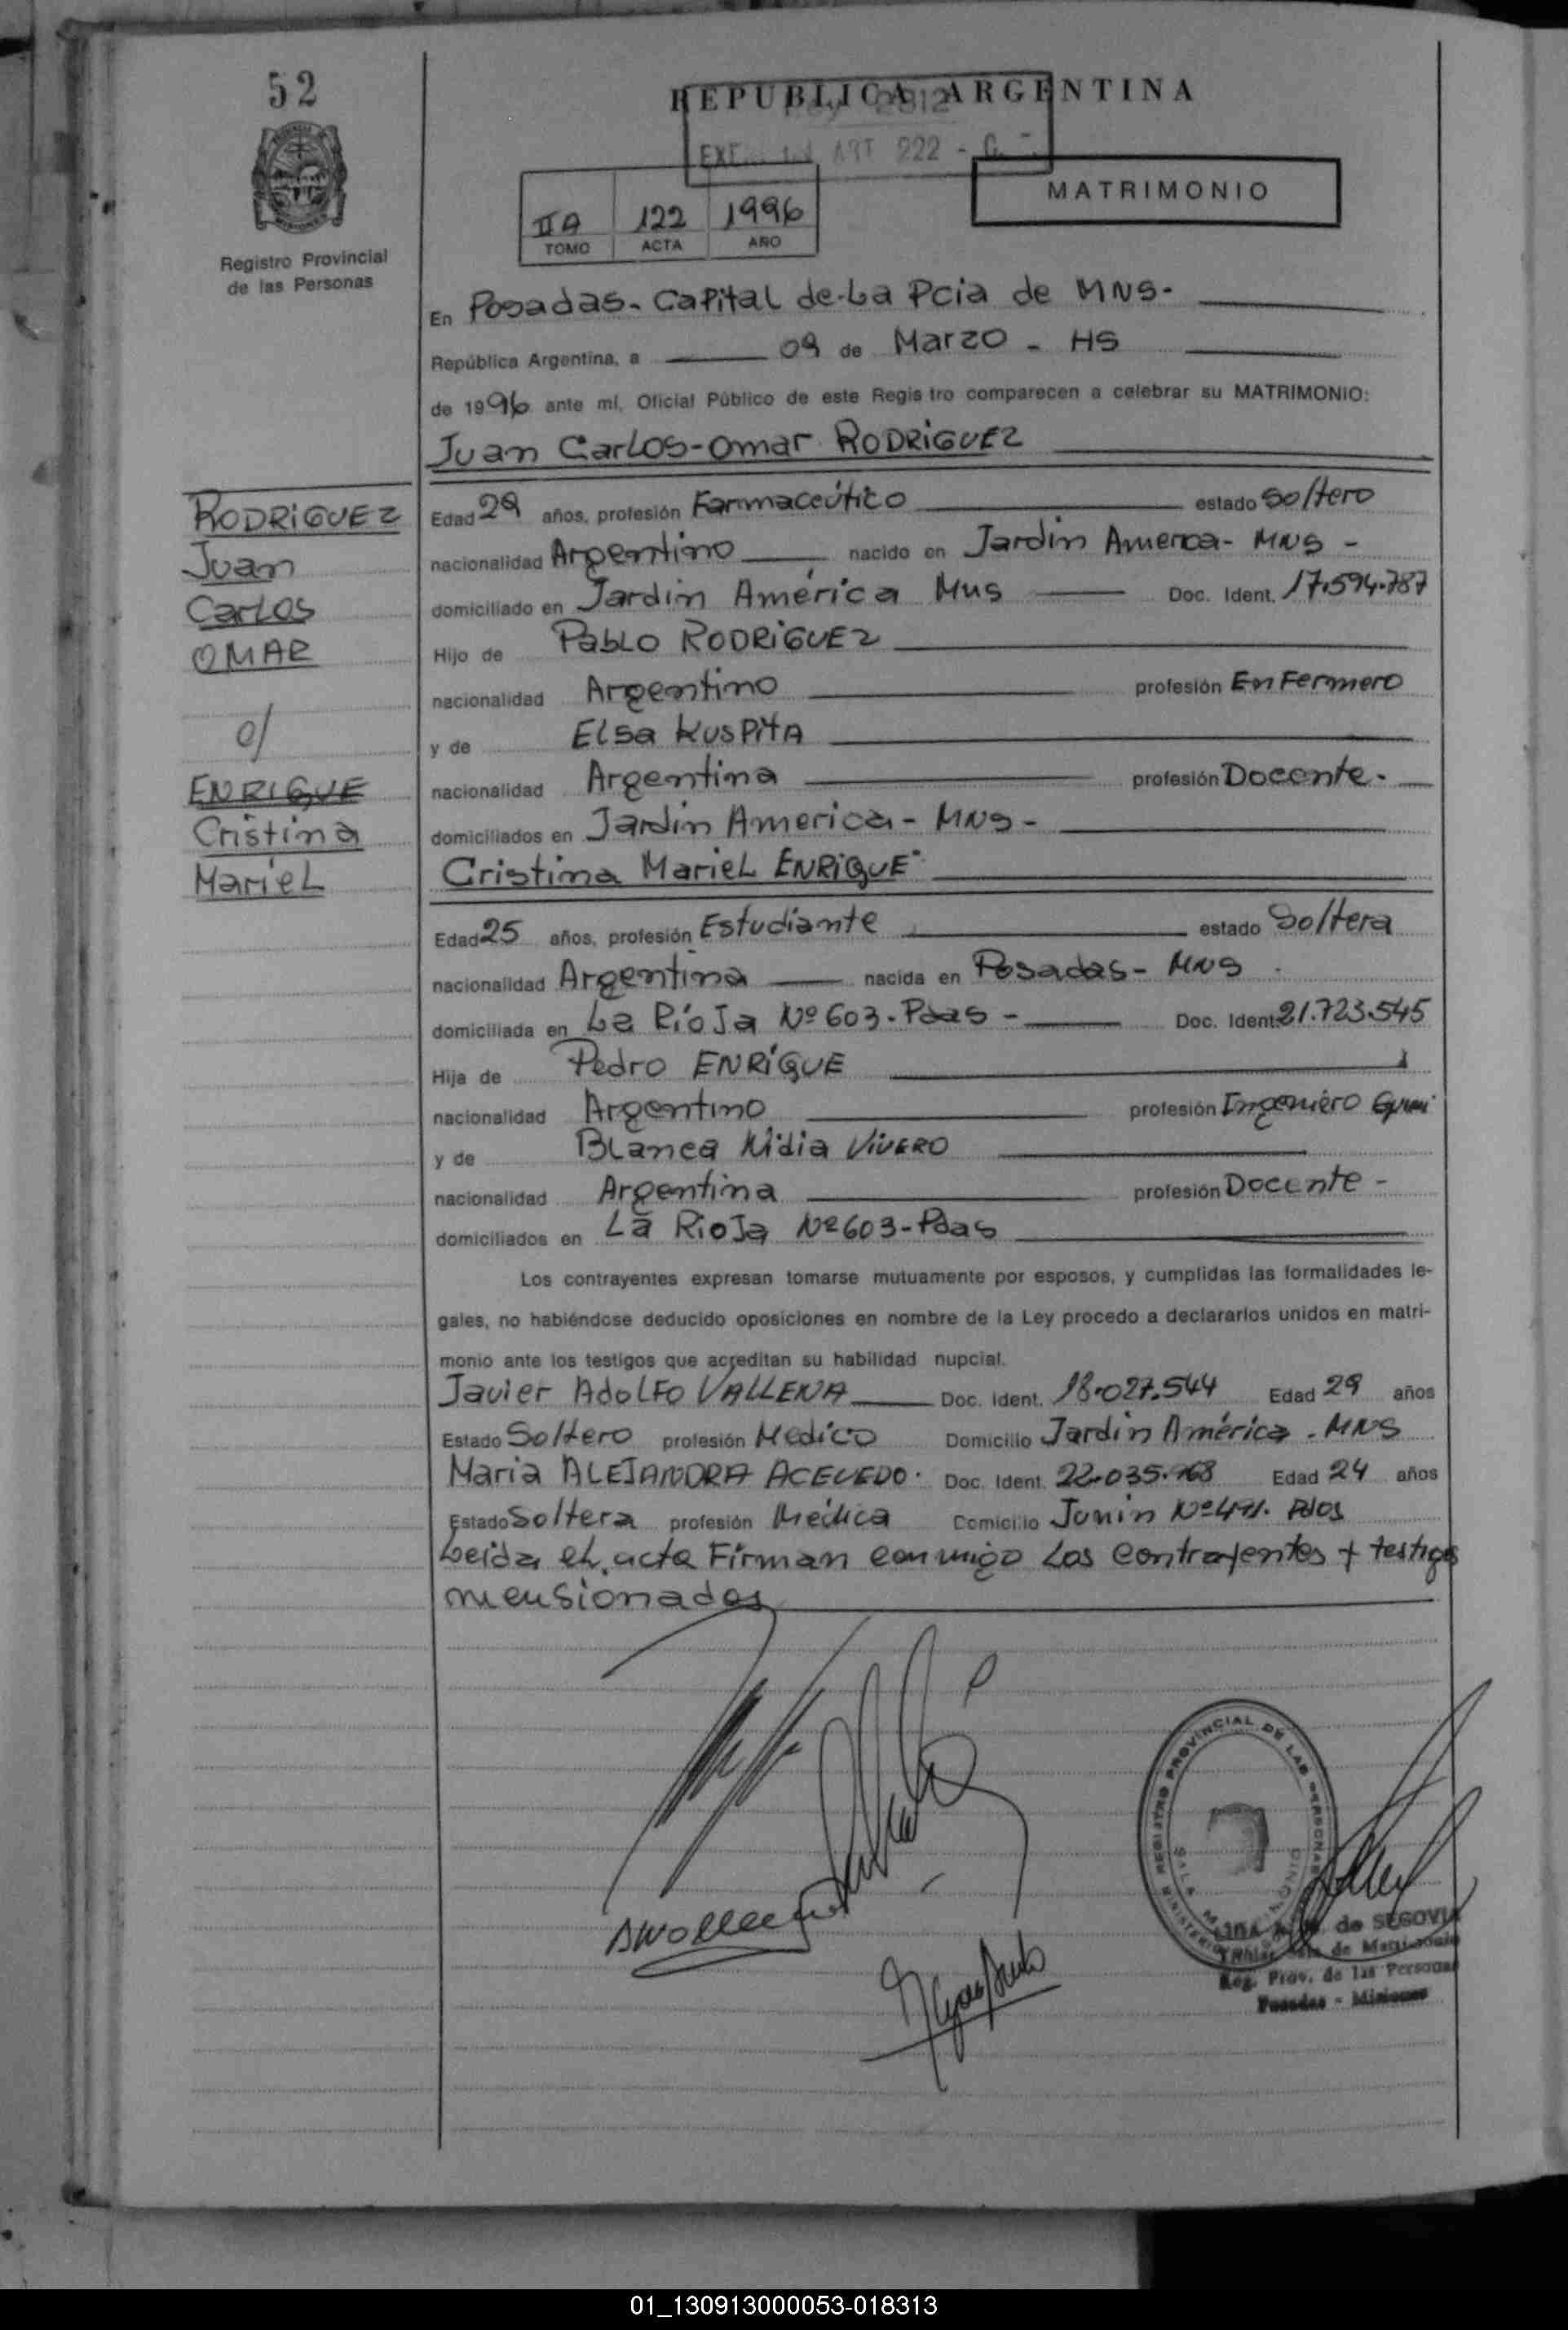 52
REPUBLICA ARGENTINA
ART 222 -
MATRIMONIO
IIA 122 1996
TOMO ACTA AÑO
Registro Provincial
de las Personas
En Posadas- Capital de La Pcia de MNS-
República Argentina, a 09 de Marzo - HS
de 1996 ante mí, Oficial Público de este Regis tro comparecen a celebrar su MATRIMONIO:
Juan Carlos-Omar RODRIGUEZ
RODRIGUEZ
Juan
Carlos
OMAR
c/
ENRIQUE
Cristina
Mariel
Edad 29 años, profesión Farmaceútico estado Soltero
nacionalidad Argentino nacido en Jardin America- MNS -
domiciliado en Jardin América Mns Doc. Ident. 17.594.787
Hijo de Pablo RODRIGUEZ
nacionalidad Argentino profesión Enfermero
y de Elsa KUSPITA
nacionalidad Argentina profesión Docente-
domiciliados en Jardin America- MNS-
Cristina Mariel ENRIQUE
Edad 25 años, profesión Estudiante estado Soltera
nacionalidad Argentina nacida en Posadas- MNS
domiciliada en La Rioja Nº 603-Pdas- Doc. Ident. 21.723.545
Hija de Pedro ENRIQUE
nacionalidad Argentino profesión Ingeniero
y de Blanca Nidia VIVERO
nacionalidad Argentina profesión Docente-
domiciliados en La Rioja Nº 603-Pdas
Los contrayentes expresan tomarse mutuamente por esposos, y cumplidas las formalidades le-
gales, no habiéndose deducido oposiciones en nombre de la Ley procedo a declararlos unidos en matri-
monio ante los testigos que acreditan su habilidad nupcial.
Javier Adolfo VALLENA Doc. Ident. 18.027.544 Edad 29 años
Estado Soltero profesión Medico Domicilio Jardin América - MNS
Maria ALEJANDRA ACEVEDO. Doc. Ident. Edad 24 años
Estado Soltera profesión Médica Domicilio Junin Pdas
Leida el acta Firman conmigo Los contrayentes + testigos
mensionados
REGISTRO PROVINCIAL DE LAS PERSONAS
MINISTERIO
de SEGOVIA
de Matrimonio
Reg. Prov. de las Personas
Posadas - Misiones
01_130913000053-018313